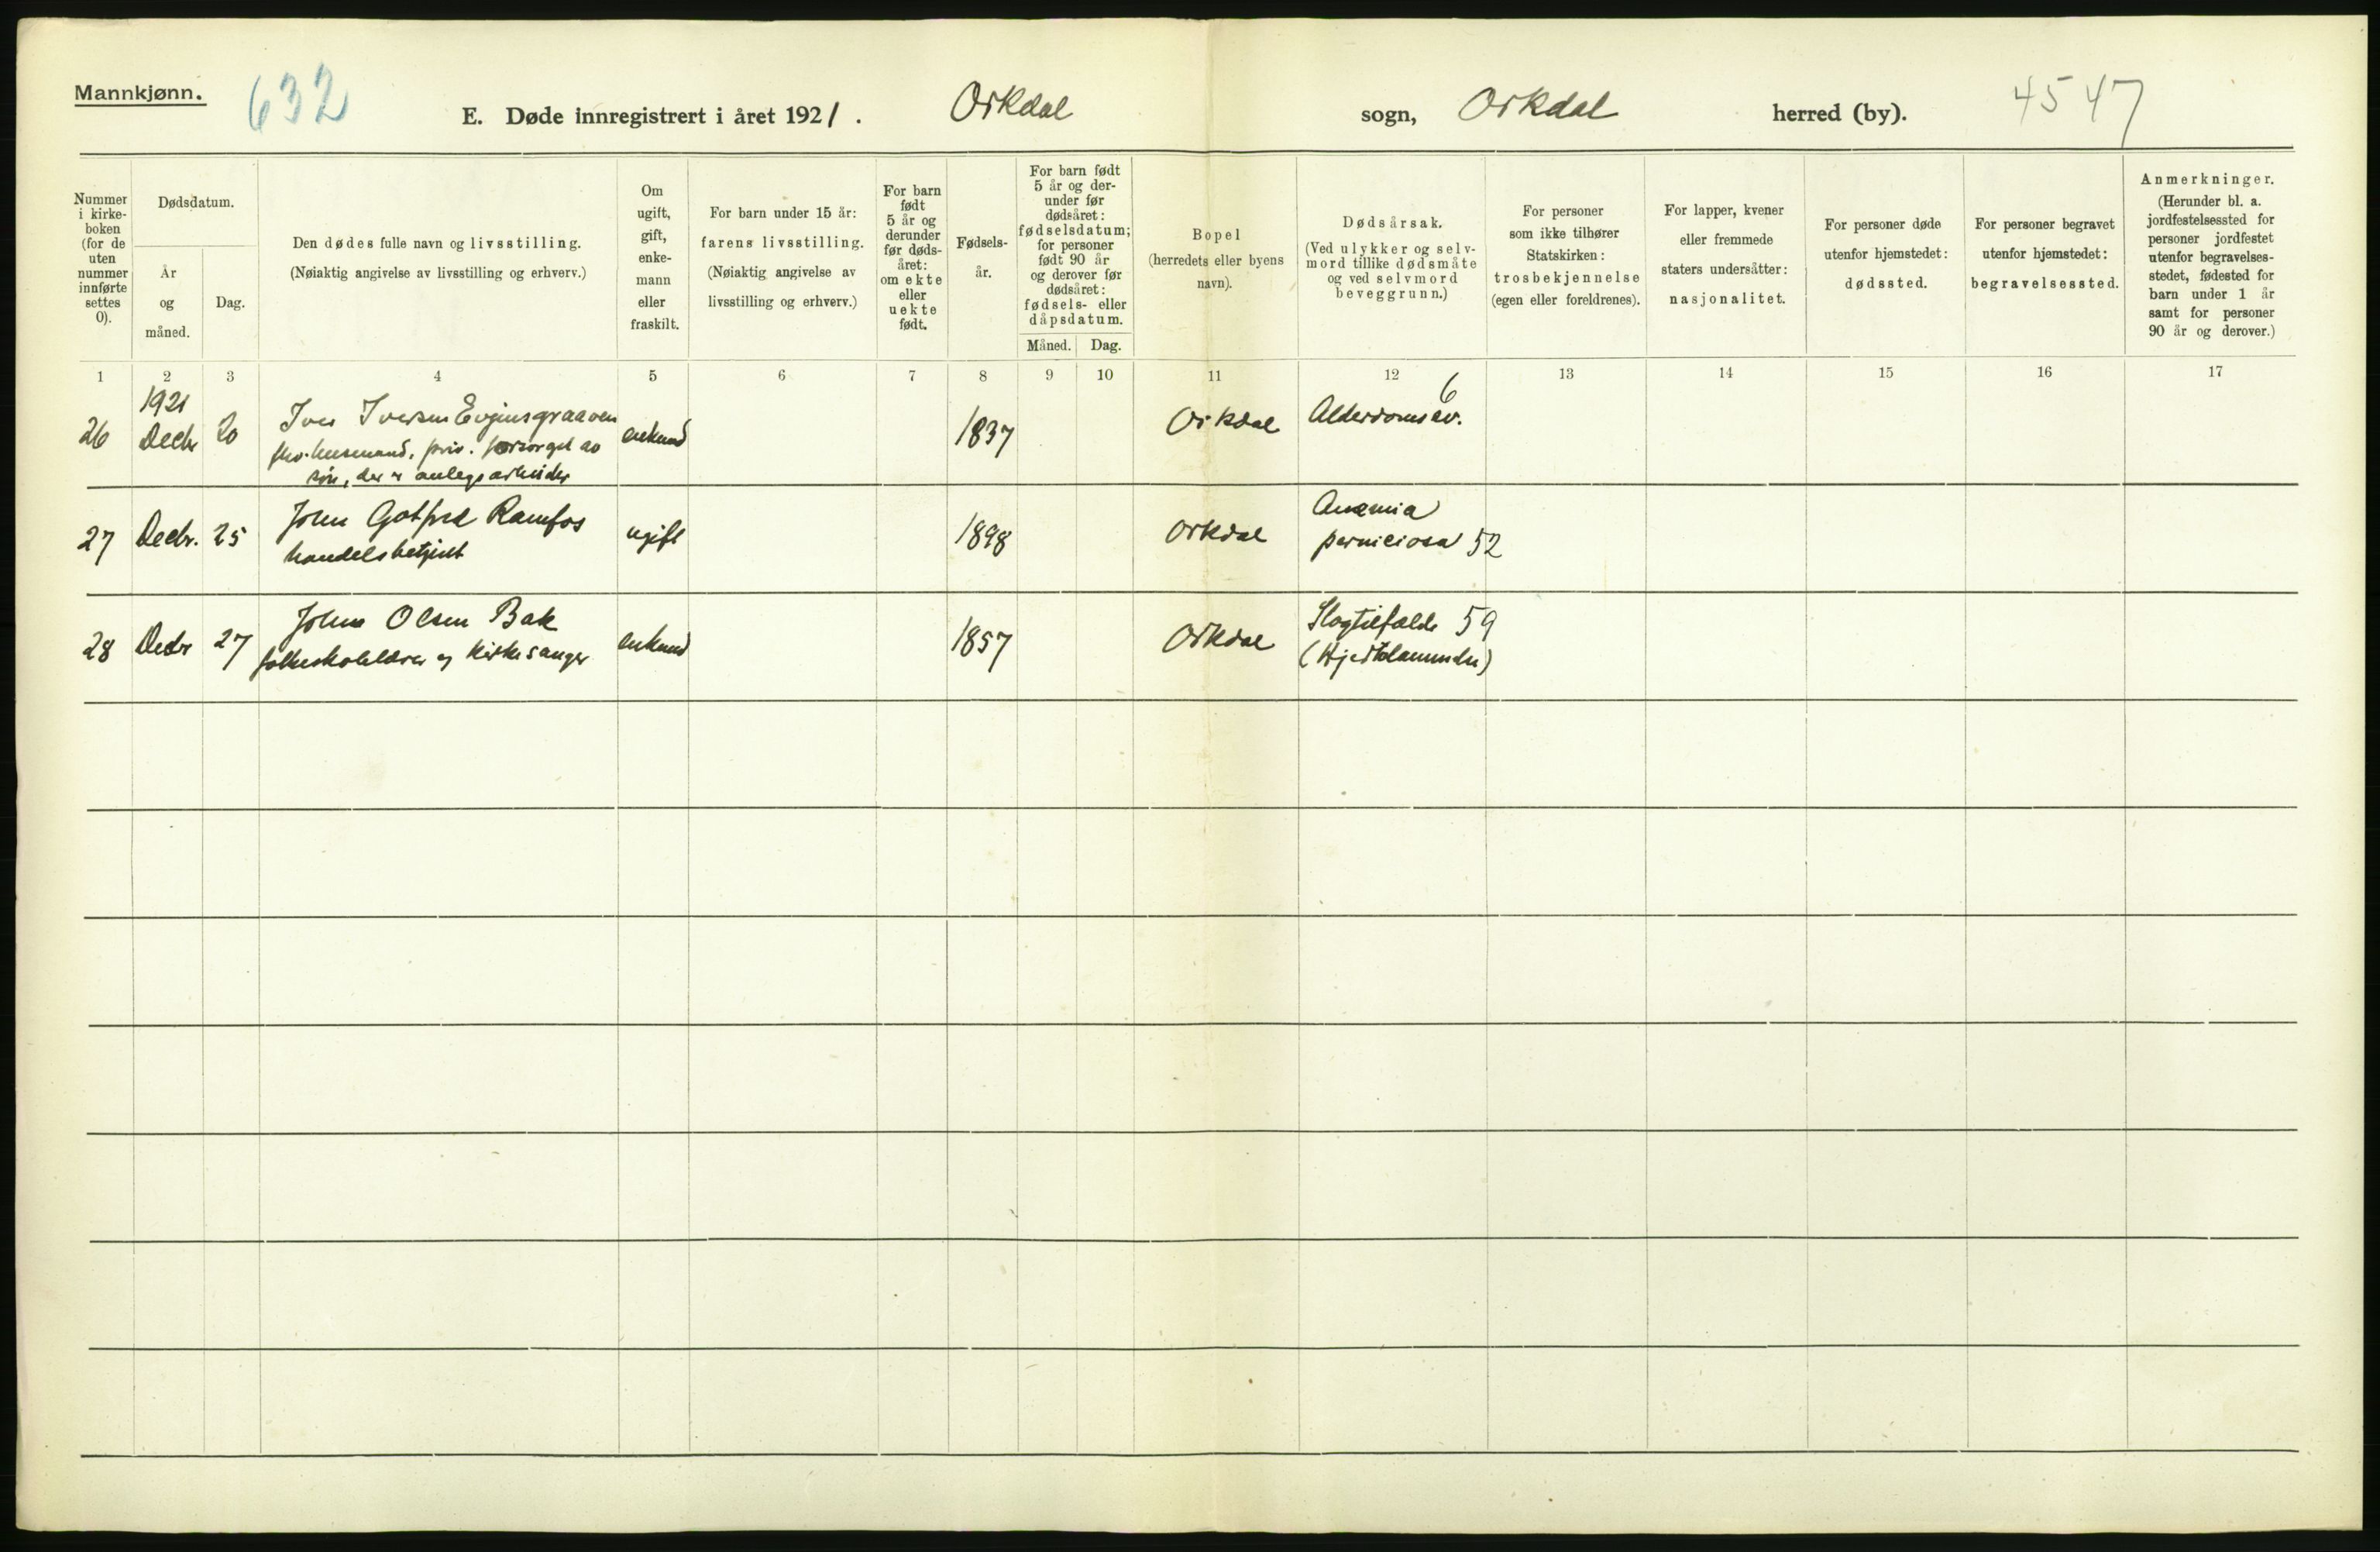 Mannkjønn.
632
E. Døde innregistrert i året 1921. Orkdal sogn, Orkdal herred (by).
4547
Nummer
i kirke-
boken
(for de
uten
nummer
innførte
settes
0).
Dødsdatum.
År
og
måned.
Dag.
Den dødes fulle navn og livsstilling.
(Nøiaktig angivelse av livsstilling og erhverv.)
Om
ugift,
gift,
enke-
mann
eller
fraskilt.
For barn under 15 år:
farens livsstilling.
(Nøiaktig angivelse av
livsstilling og erhverv.)
For barn
født
5 år og
derunder
før døds-
året:
om ekte
eller
uekte
født.
Fødsels-
år.
For barn født
5 år og der-
under før
dødsåret:
fødselsdatum;
for personer
født 90 år
og derover før
dødsåret:
fødsels- eller
dåpsdatum.
Måned. Dag.
Bopel
(herredets eller byens
navn).
Dødsårsak.
(Ved ulykker og selv-
mord tillike dødsmåte
og ved selvmord
beveggrunn.)
For personer
som ikke tilhører
Statskirken:
trosbekjennelse
(egen eller foreldrenes).
For lapper, kvener
eller fremmede
staters undersåtter:
nasjonalitet.
For personer døde
utenfor hjemstedet:
dødssted.
For personer begravet
utenfor hjemstedet:
begravelsessted.
Anmerkninger.
(Herunder bl. a.
jordfestelsessted for
personer jordfestet
utenfor begravelses-
stedet, fødested for
barn under 1 år
samt for personer
90 år og derover.)
1 2 3 4 5 6 7 8 9 10 11 12 13 14 15 16 17
1921
26 Decbr 20 Iver Iversen Evjensgraaven enkemd 1837 Orkdal Alderdomssv. 6
fhv. husmand, priv. forsørget av
søn, der er anlegsarbeider
27 Decbr. 25 John Gotfred Ramfos ugift 1898 Orkdal Anæmia
handelsbetjent perniciosa 52
28 Decbr 27 John Olsen Bak enkemd 1857 Orkdal Slagtilfælde 59
folkeskolelærer og kirkesanger (Hjertelammelse)